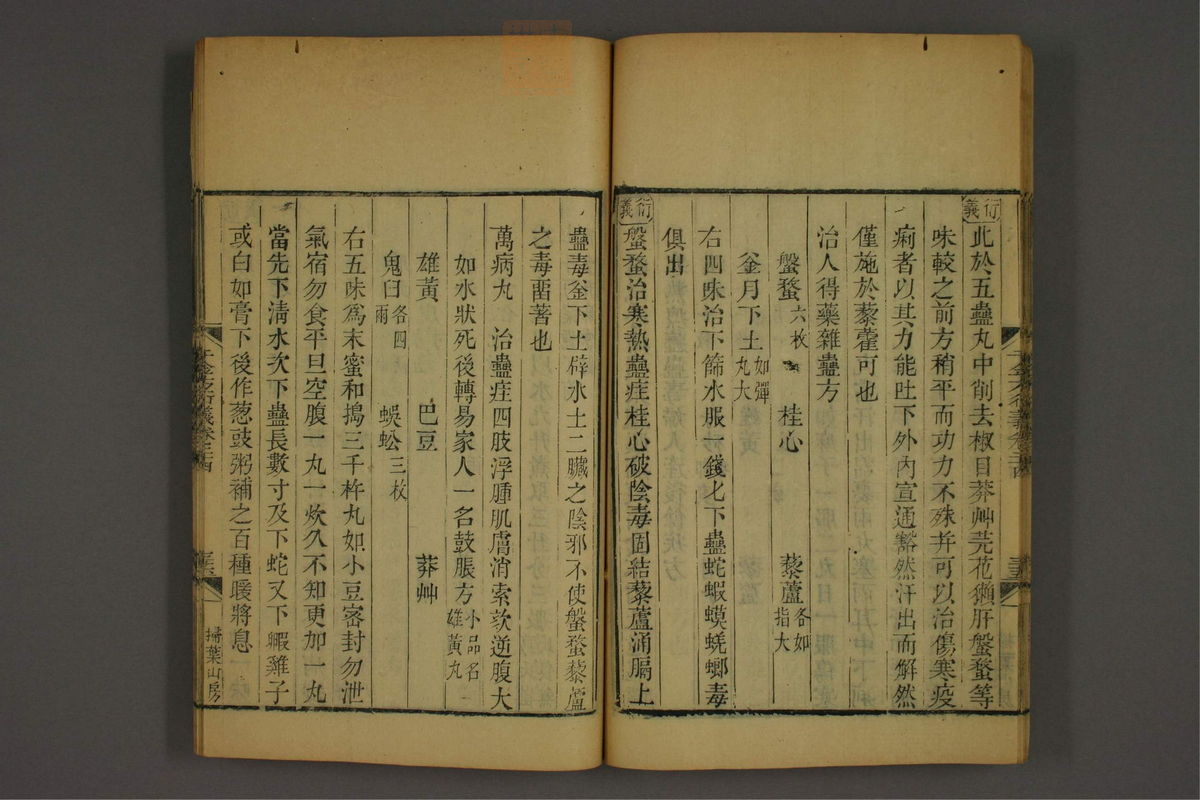 衍義
此於五蠱丸中削去椒目莽艸芫花獺肝盤蝥等
味較之前方稍平而功力不殊并可以治傷寒疫
痢者以其力能吐下外內宣通豁然汗出而解然
僅施於藜藿可也
治人得藥雜蠱方
盤蝥六枚 桂心 藜蘆各如指大
釜月下土如彈丸大
右四味治下篩水服一錢匕下蠱蛇蝦蟆蜣蜋毒
俱出
衍義
盤蝥治寒熱蠱疰桂心破陰毒固結藜蘆涌膈上
蠱毒釜下土辟水土二臟之陰邪不使盤蝥藜蘆
之毒畱著也
萬病丸 治蠱疰四肢浮腫肌膚消索欬逆腹大
如水狀死後轉易家人一名鼓脹方小品名雄黃丸
雄黃 巴豆 莽艸
鬼臼各四兩 蜈蚣三枚
右五味為末蜜和搗三千杵丸如小豆密封勿泄
氣宿勿食平旦空腹一丸一炊久不知更加一丸
當先下清水次下蠱長數寸及下蛇又下蝦雞子
或白如膏下後作葱豉粥補之百種暖將息
千金方衍義卷二十四
掃葉山房